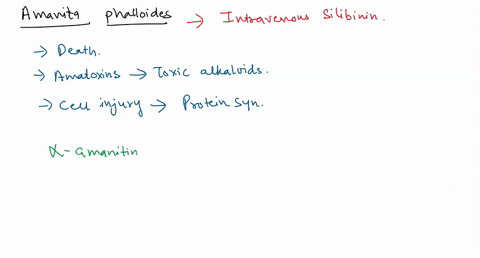 Amanita phalloides → Intravenous Silibinin.
→ Death.
→ Amatoxins → Toxic alkaloids.
→ Cell injury → Protein syn.
α-amanitin